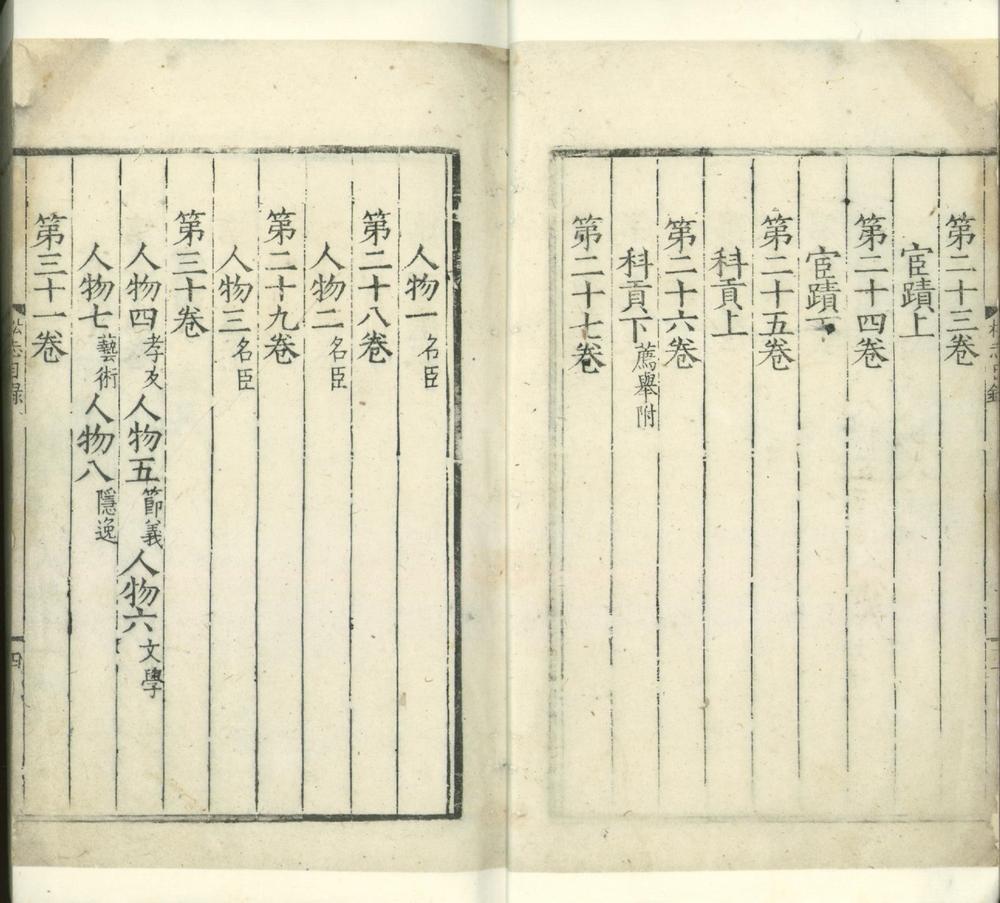 第二十三卷
宦蹟上
第二十四卷
宦蹟下
第二十五卷
科貢上
第二十六卷
科貢下薦舉附
第二十七卷
人物一名臣
第二十八卷
人物二名臣
第二十九卷
人物三名臣
第三十卷
人物四孝友人物五節義人物六文學
人物七藝術人物八隱逸
第三十一卷
松志目録
四